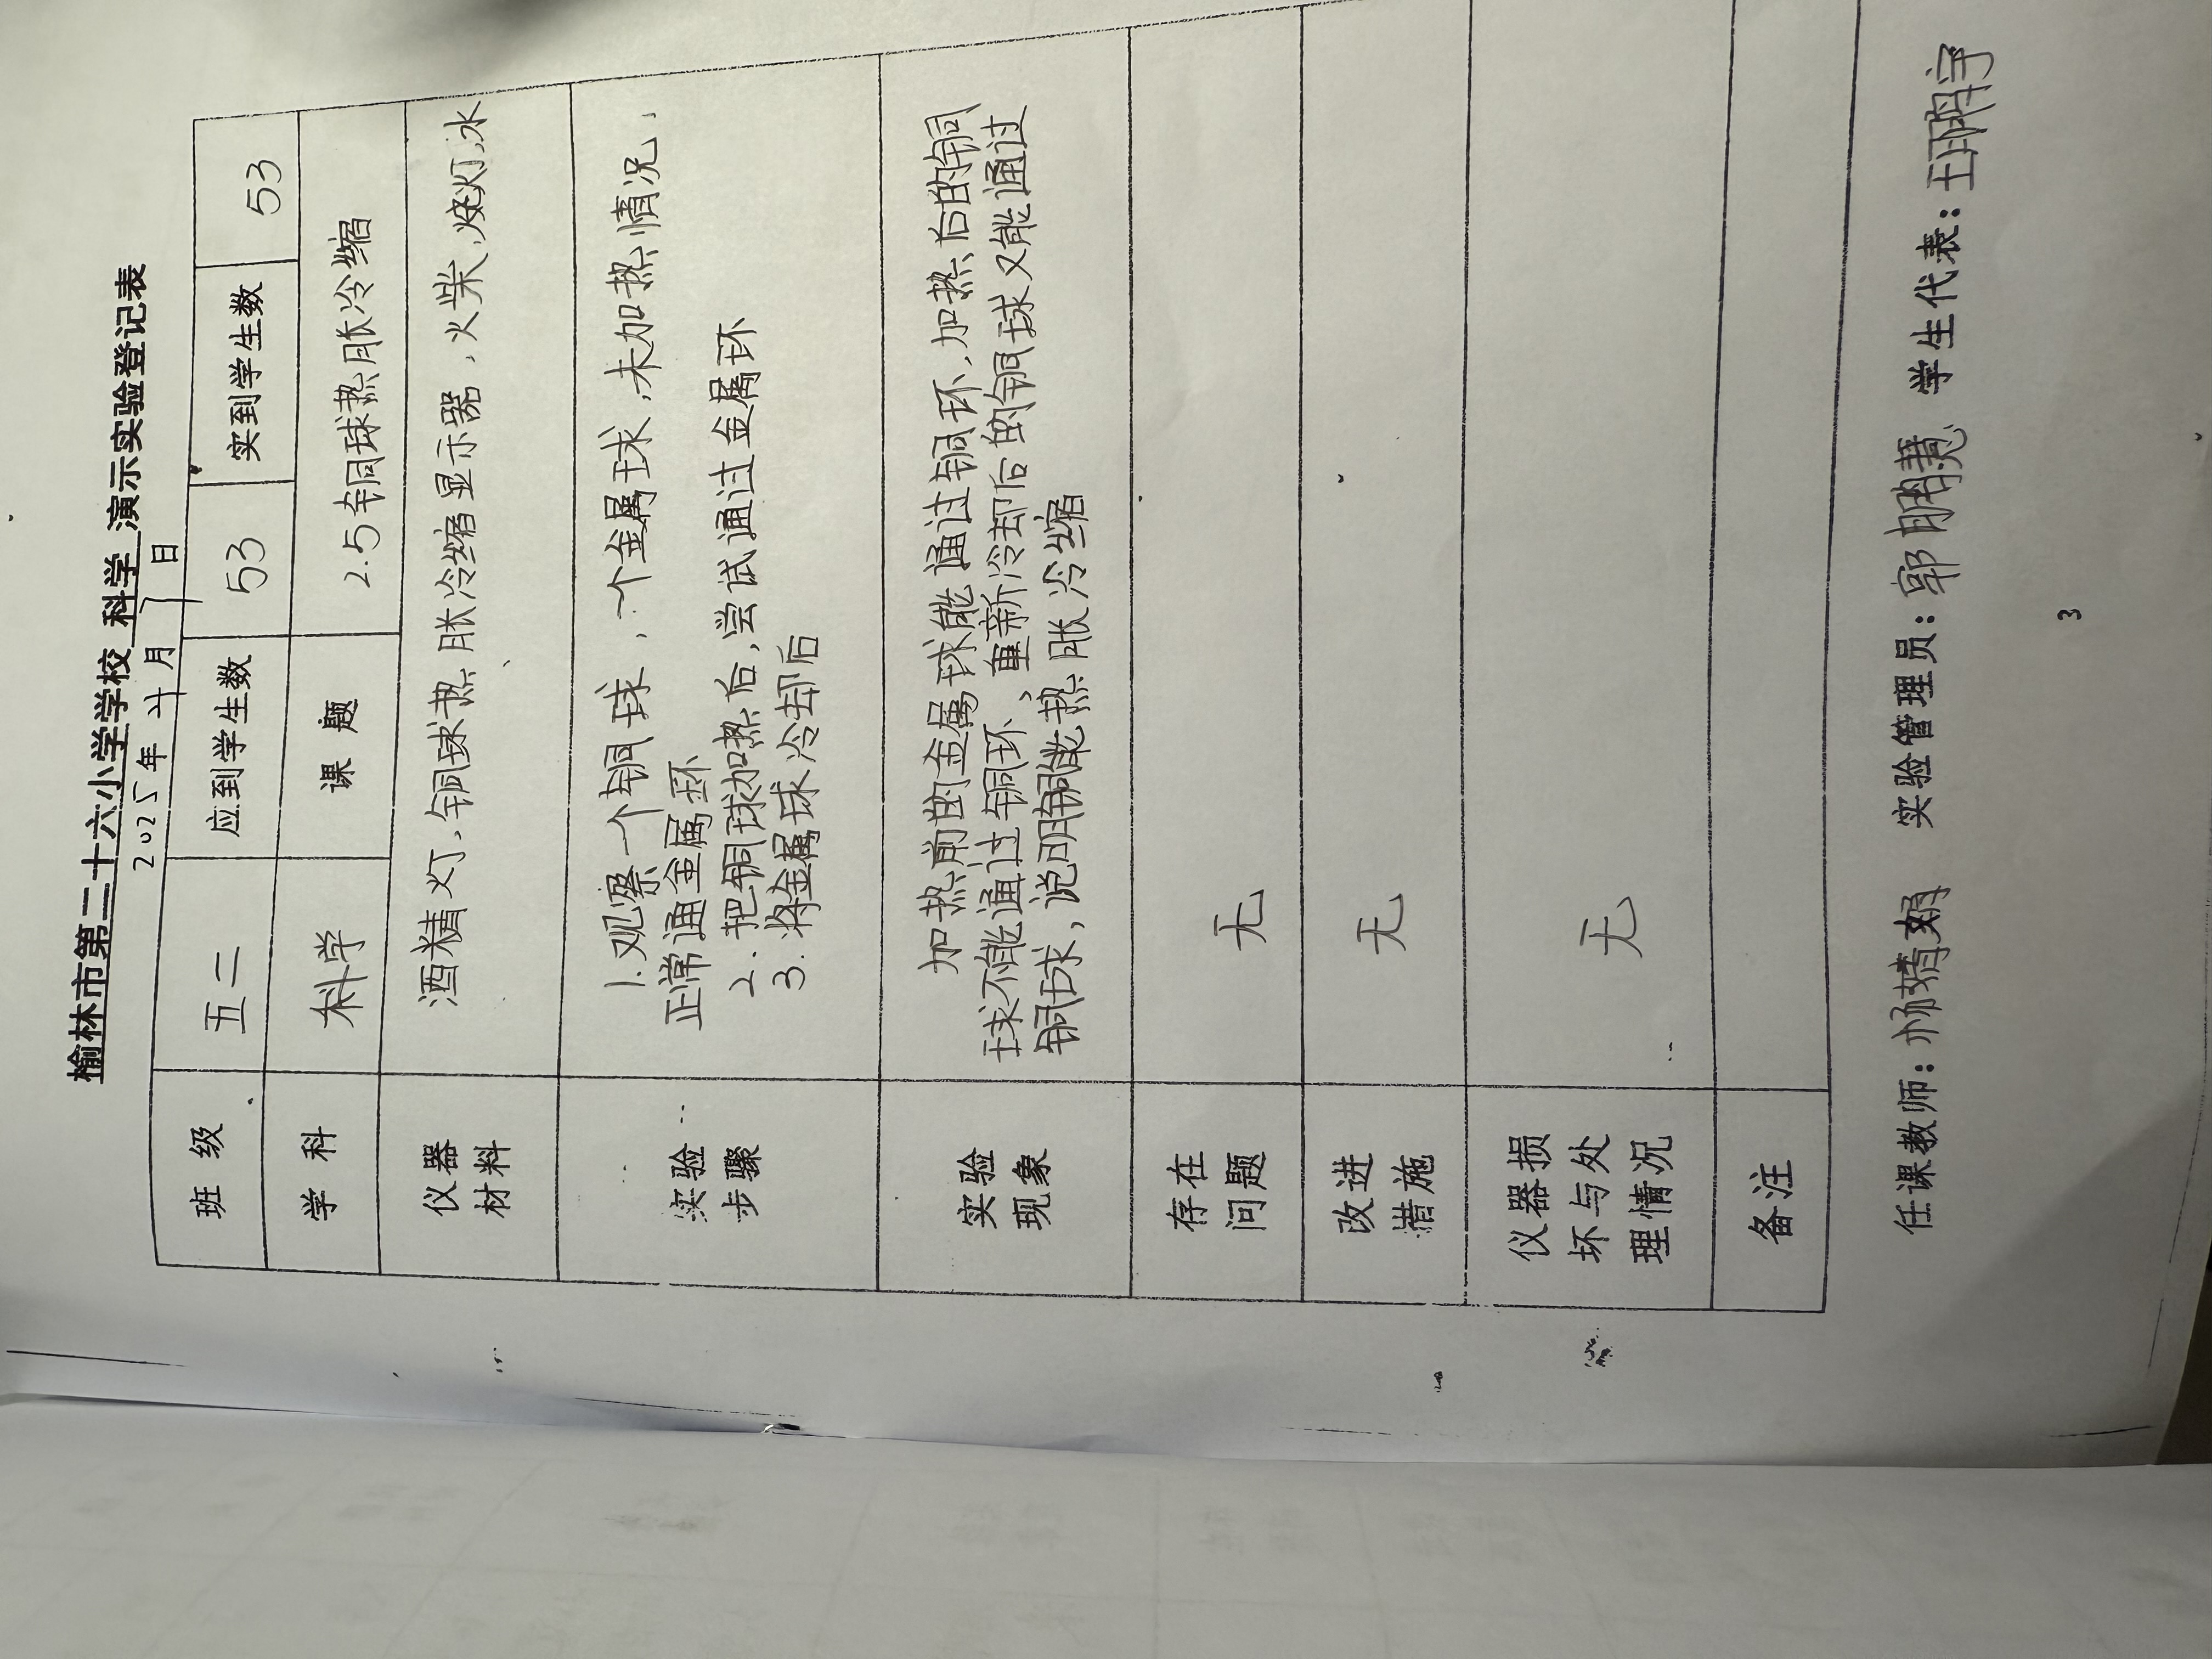 榆林市第二十六小学学校 科学 演示实验登记表
2025年 4月 7日
班 级 五二 应到学生数 53 实到学生数 53
学 科 科学 课 题 2.5铜球热胀冷缩
仪器材料 酒精灯、铜球热胀冷缩显示器、火柴、烧灯、水
实验步骤
1.观察一个铜球,一个金属球,未加热情况,
正常通金属环
2.把铜球加热后,尝试通过金属环
3.将金属球冷却后
实验现象
加热前的金属球能通过铜环,加热后的铜
球不能通过铜环、重新冷却后的铜球又能通过
铜球,说明铜能热胀冷缩
存在问题 无
改进措施 无
仪器损坏与处理情况 无
备注
任课教师:杨婧娟 实验管理员:郭鹏慧 学生代表:王鹏宇
3